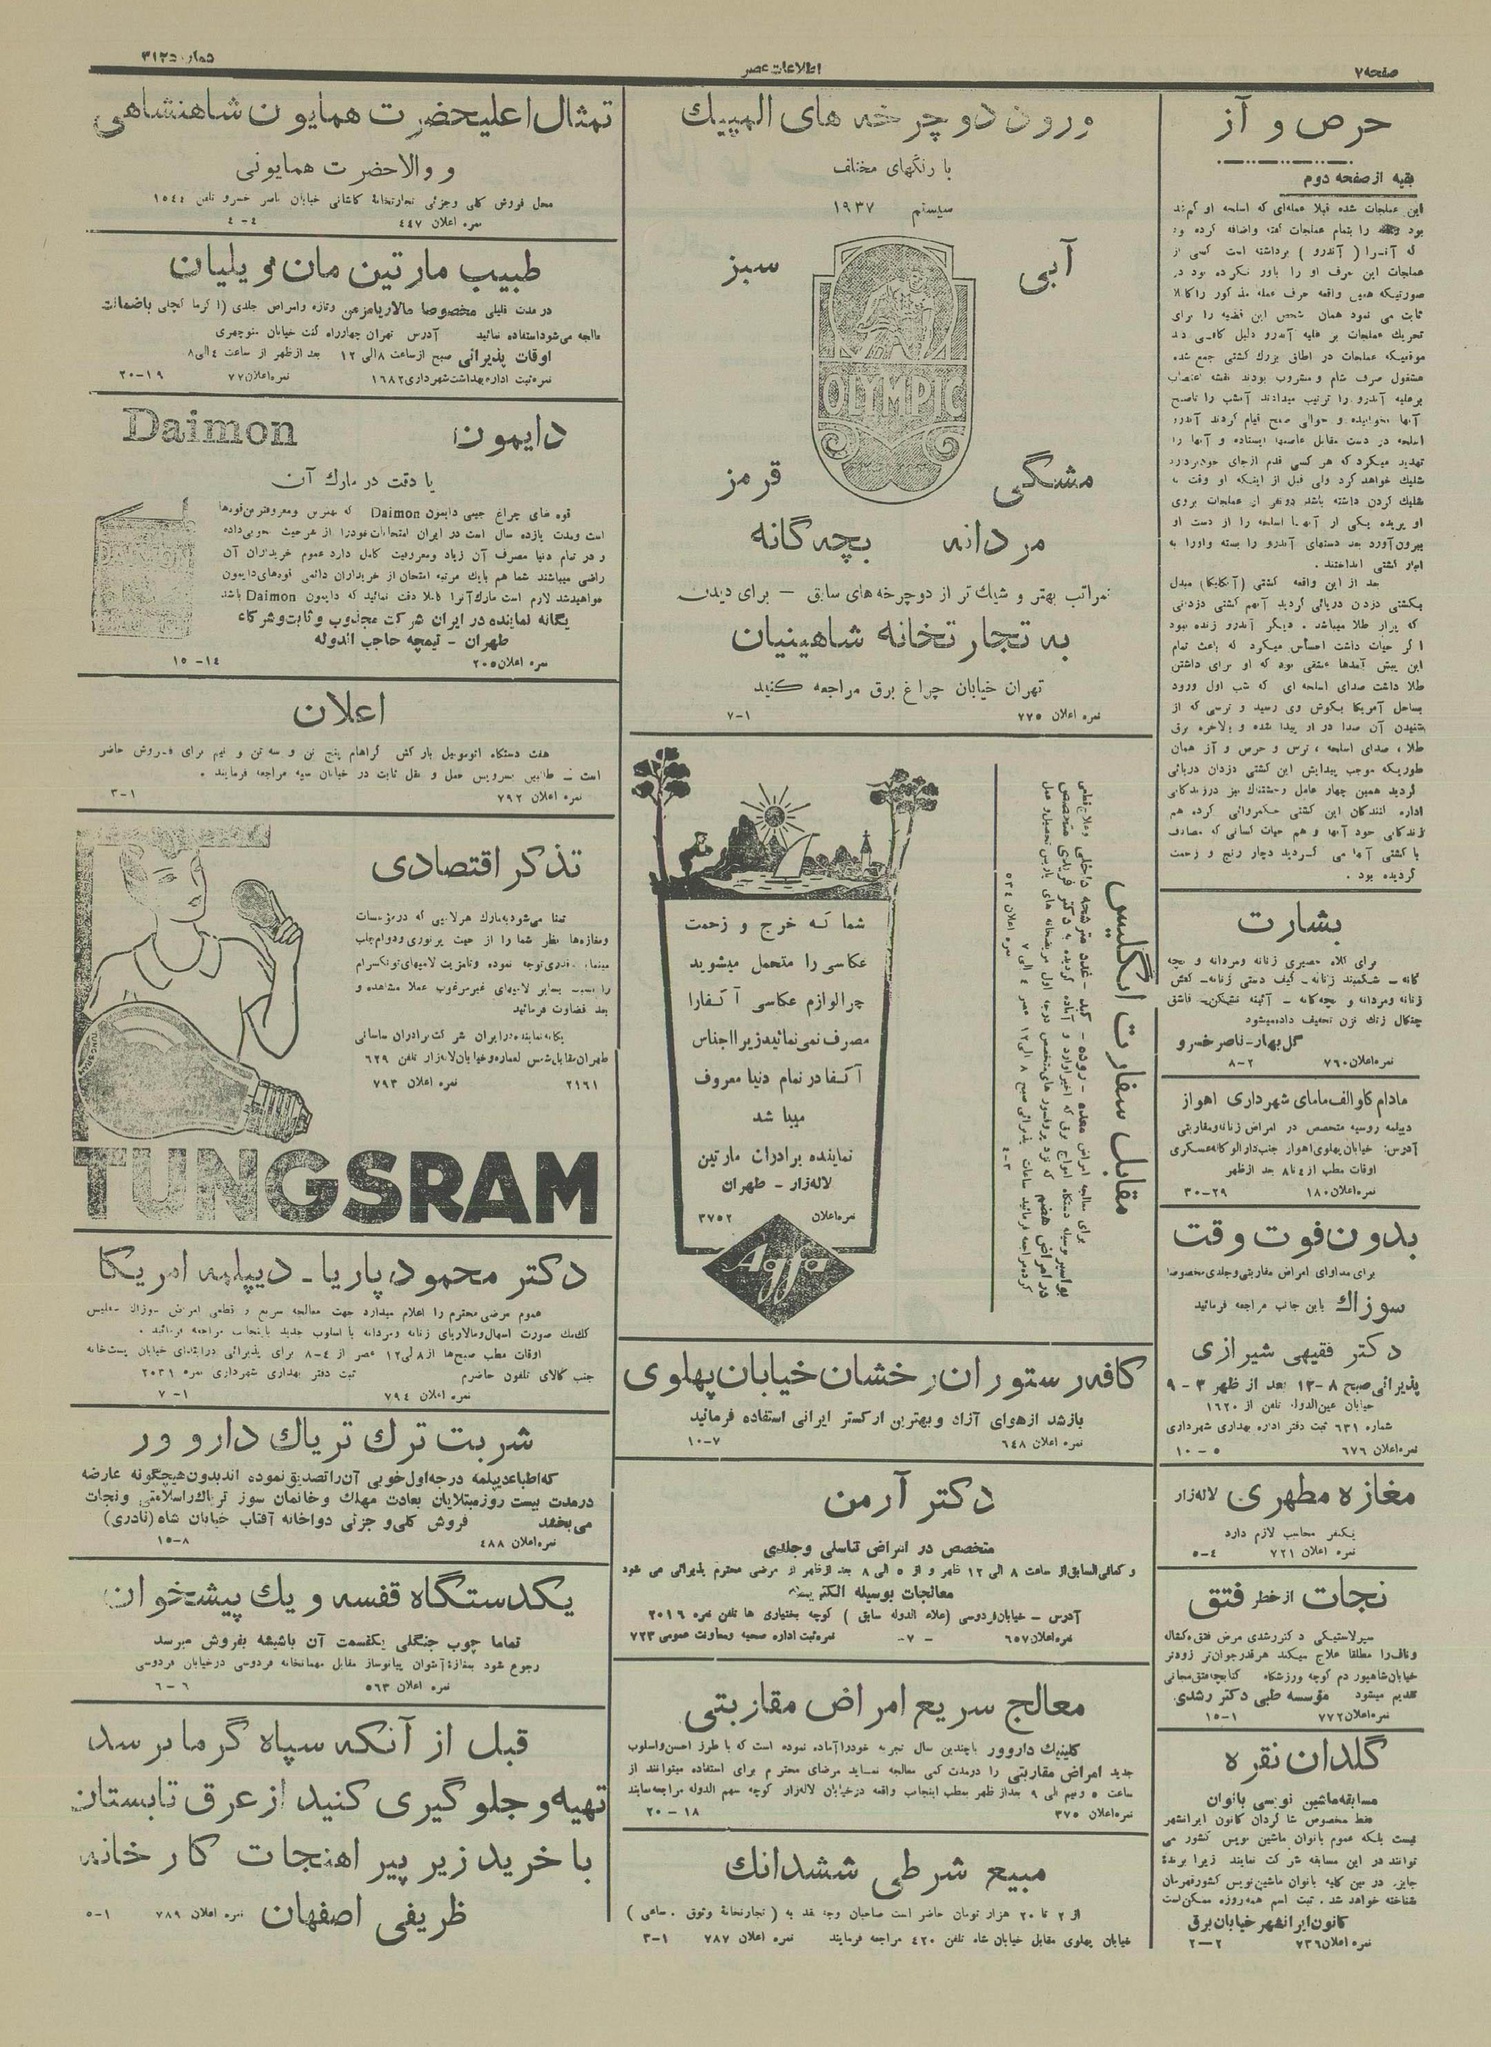 صفحه ۷
اطلاعات عصر
شماره ۳۱۲۵
حرص و آز
بقیه از صفحه دوم
این عملجات شده قبلا عمله‌ای که اسلحه او گم شد
بود را بتمام عملجات گفته و اضافه کرده بود
که آنرا ( آندرو ) برداشته است کسی از
عملجات این حرف او را باور نکرده بود در
صورتیکه همین واقعه حرف عمله مذکور را کاملا
ثابت می نمود همان شخص این قضیه را برای
تحریک عملجات بر علیه آندرو دلیل کافی دید
موقعیکه عملجات در اطاق بزرگ کشتی جمع شده
مشغول صرف شام و مشروب بودند نقشه اعتصاب
برعلیه آندرو را ترتیب میدادند آنشب را تا صبح
آنها نخوابیده و حوالی صبح قیام کردند آندرو
اسلحه در دست مقابل عاصیها ایستاده و آنها را
تهدید میکرد که هر کسی قدم از جای خود بردارد
شلیک خواهد کرد ولی قبل از اینکه او وقت به
شلیک کردن داشته باشد دو نفر از عملجات بروی
او پریده یکی از آنها اسلحه را از دست او
بیرون آورد بعد دستهای آندرو را بسته و او را به
انبار کشتی انداختند .
بعد از این واقعه کشتی (آنگلیکا) مبدل
بکشتی دزدن دریائی گردید آنهم کشتی دزدانی
که پر از طلا میباشد . دیگر آندرو زنده نبود
اگر حیات داشت احساس میکرد که باعث تمام
این پیش آمدها عشقی بود که او برای داشتن
طلا داشت صدای اسلحه ای که شب اول ورود
بساحل آمریکا بگوش وی رسید و ترسی که از
شنیدن آن صدا در او پیدا شده و بالاخره برق
طلا ، صدای اسلحه ، ترس و حرص و آز همان
طوریکه موجب پیدایش این کشتی دزدان دریائی
گردید همین چهار عامل وحشتناک نیز در زندگانی
اداره کنندگان این کشتی حکمروائی کرده هم
زندگانی خود آنها و هم حیات کسانی که مصادف
با کشتی آنها می گردید دچار رنج و زحمت
گردیده بود .
بشارت
برای کلاه حصیری زنانه و مردانه و بچه
گانه – شکمبند زنانه – کیف دستی زنانه – کفش
زنانه و مردانه و بچه گانه – آئینه نشیکن – قاشق
چنگال زنگ نزن تخفیف داده میشود
گل بهار – ناصر خسرو
نمره اعلان ۷۶۰ ۲–۸
مادام کاوالف مامای شهرداری اهواز
دیپلمه روسیه متخصص در امراض زنانه و مقاربتی
آدرس: خیابان پهلوی اهواز جنب دارالوکاله عسکری
اوقات مطب از ٤ تا ۸ بعد از ظهر
نمره اعلان ۱۸۰ ۲۹–۳۰
بدون فوت وقت
برای مداوای امراض مقاربتی و جلدی مخصوصا
سوزاك باین جانب مراجعه فرمائید
دکتر فقیهی شیرازی
پذیرائی صبح ۸ – ۱۲ بعد از ظهر ۳ – ۹
خیابان عین‌الدوله تلفن از ۱۶۲۰
شماره ۶۳۱ ثبت دفتر اداره بهداری شهرداری
نمره اعلان ۶۷۶ ۵ – ۱۰
مغازه مطهری لاله‌زار
یکنفر محاسب لازم دارد
نمره اعلان ۷۲۱ ٤–۵
نجات از خطر فتق
سیر لاستیکی دکتر رشدی مرض فتق و کشاله
و ناف را مطلقا علاج میکند هر قدر جوان‌تر زودتر
خیابان شاهپور دم کوچه ورزشگاه کتابچه فتق مجانی
تقدیم میشود مؤسسه طبی دکتر رشدی
نمره اعلان ۷۷۲ ۱–۱۵
گلدان نقره
مسابقه ماشین نویسی بانوان
فقط مخصوص شاگردان کانون ایرانشهر
نیست بلکه عموم بانوان ماشین نویس کشور می
توانند در این مسابقه شرکت نمایند زیرا برنده
جایزه در بین کلیه بانوان ماشین نویس کشور قهرمان
شناخته خواهد شد . ثبت اسم همه روزه ممکن است
کانون ایرانشهر خیابان برق
نمره اعلان ۷۳۶ ۲–۲
ورون دوچرخه های المپیك
با رنگهای مختلف
سیستم ۱۹۳۷
آبی سبز
OLYMPIC
مشگی قرمز
مردانه بچه گانه
بمراتب بهتر و شیك تر از دوچرخه های سابق – برای دیدن
به تجارتخانه شاهینیان
تهران خیابان چراغ برق مراجعه کنید
نمره اعلان ۷۷۵ ۱–۷
مقابل سفارت انگلیس
برای معالجه امراض معده – روده – کبد – غدد مترشحه داخلی وعلاج قطعی
بواسیر بوسیله دستگاه امواج برق که اخیرا وارد و آماده گردیده به دکتر فریدی متخصص
در امراض هضم که نزد پرفسورهای متخصص درجه اول مریضخانه های پاریس تحصیل و عمل
کرده مراجعه فرمائید ساعات پذیرائی صبح ۸ الی ۱۲ عصر ٤ الی ۷
نمره اعلان ۵۳٤ ۳–٤
شما که خرج و زحمت
عکاسی را متحمل میشوید
چرا لوازم عکاسی آگفا را
مصرف نمی نمائید زیرا اجناس
آگفا در تمام دنیا معروف
میباشد
نماینده برادران مارتین
لاله‌زار – طهران
نمره اعلان ۳۷۵۲
Agfa
کافه رستوران رخشان خیابان پهلوی
باز شد از هوای آزاد و بهترین ارکستر ایرانی استفاده فرمائید
نمره اعلان ۶۴۸ ۷–۱۰
دکتر آرمن
متخصص در امراض تناسلی و جلدی
و کمافی‌السابق از ساعت ۸ الی ۱۲ ظهر و از ۵ الی ۸ بعد از ظهر از مرضی محترم پذیرائی می شود
معالجات بوسیله الکتریسته
آدرس – خیابان فردوسی (علاء الدوله سابق ) کوچه بختیاری ها تلفن نمره ۲۰۱۶
نمره اعلان ۶۵۷ – ۷ – نمره ثبت اداره صحیه و معاونت عمومی ۷۲۳
معالج سریع امراض مقاربتی
کلینیك داروور با چندین سال تجربه خود را آماده نموده است که با طرز احسن و اسلوب
جدید امراض مقاربتی را در مدت کمی معالجه نماید مرضای محترم برای استفاده میتوانند از
ساعت ۵ و نیم الی ۹ بعد از ظهر بمطب اینجانب واقعه در خیابان لاله‌زار کوچه سهم الدوله مراجعه نمایند
نمره اعلان ۳۷۵ ۱۸ – ۲۰
مبیع شرطی ششدانك
از ۲ تا ۲۰ هزار تومان حاضر است صاحبان وجه نقد به ( تجارتخانه وثوق . ساعی )
خیابان پهلوی مقابل خیابان شاه تلفن ٤۲۰ مراجعه فرمایند نمره اعلان ۷۸۷ ۱–۳
تمثال اعلیحضرت همایون شاهنشاهی
و والاحضرت همایونی
محل فروش کلی و جزئی تجارتخانهٔ کاشانی خیابان ناصر خسرو تلفن ۱٥٤٤
نمره اعلان ٤٤۷ ٤–٤
طبیب مارتین مان ویلیان
در مدت قلیلی مخصوصا مالاریا مزمن و تازه و امراض جلدی (اگزما کچلی) باضمانت
معالجه می‌شود استفاده نمائید آدرس تهران چهارراه کنت خیابان منوچهری
اوقات پذیرائی صبح از ساعت ۸ الی ۱۲ بعد از ظهر از ساعت ٤ الی ۸
نمره ثبت اداره بهداشت شهرداری ۱۶۸۲ نمره اعلان ۷۷ ۱۹–۲۰
دایمون Daimon
با دقت در مارك آن
قوه های چراغ جیبی دایمون Daimon که بهترین و معروفترین قوه‌ها
است و مدت یازده سال است در ایران امتحانات خود را از هر حیث بخوبی داده
و در تمام دنیا مصرف آن زیاد و معروفیت کامل دارد عموم خریداران آن
راضی میباشند شما هم با یك مرتبه امتحان از خریداران دائمی قوه‌های دایمون
خواهید شد لازم است مارك آنرا کاملا دقت نمائید که دایمون Daimon باشد
یگانه نماینده در ایران شرکت مجذوب و ثابت و شرکاء
طهران – تیمچه حاجب الدوله
نمره اعلان ۲۰۵ ۱٤–۱۵
اعلان
هفت دستگاه اتومبیل بارکش گراهام پنج تن و سه تن و نیم برای فروش حاضر
است طالبین بسرویس حمل و نقل ثابت در خیابان سپه مراجعه فرمایند .
نمره اعلان ۷۹۲ ۱–۳
تذکر اقتصادی
تمنا می‌شود بمارك هر لامپی که در مؤسسات
و مغازه‌ها نظر شما را از جهت پر نوری و دوام جلب
مینماید قدری توجه نموده و مزیت لامپهای تونگسرام
را نسبت بسایر لامپهای غیر مرغوب عملا مشاهده و
بعد قضاوت فرمائید
یگانه نماینده در ایران شرکت برادران ساسانی
طهران مقابل شمس العماره و خیابان لاله‌زار تلفن ۶۲۹
۲۱۶۱ نمره اعلان ۷۹۳
TUNGSRAM
TUNGSRAM
دکتر محمود پاریا – دیپلمه امریکا
عموم مرضی محترم را اعلام میدارد جهت معالجه سریع و قطعی امراض سوزاك سفلیس
کك‌مك صورت اسهال و مالاریای زنانه و مردانه با اسلوب جدید باینجانب مراجعه فرمائید .
اوقات مطب صبح‌ها از ۸ الی ۱۲ عصر از ٤–۸ برای پذیرائی در ابتدای خیابان پست‌خانه
جنب کالای تلفون حاضرم ثبت دفتر بهداری شهرداری نمره ۲۰۳۱
نمره اعلان ۷۹٤ ۱–۷
شربت ترك تریاك داروور
که اطباء دیپلمه درجه اول خوبی آن را تصدیق نموده اند بدون هیچگونه عارضه
در مدت بیست روز مبتلایان بعادت مهلك و خانمان سوز تریاك را سلامتی و نجات
می‌بخشد فروش کلی و جزئی دواخانه آفتاب خیابان شاه (نادری)
نمره اعلان ٤۸۸ ۸–۱۵
یکدستگاه قفسه و یك پیشخوان
تماما چوب جنگلی یکقسمت آن باشیشه بفروش میرسد
رجوع شود بمغازه آشوان پیانوساز مقابل مهمانخانه فردوسی در خیابان فردوسی
نمره اعلان ۵۶۳ ۶–۶
قبل از آنکه سپاه گرما برسد
تهیه و جلوگیری کنید از عرق تابستان
با خرید زیر پیراهنجات کارخانه
ظریفی اصفهان نمره اعلان ۷۸۹ ۱–۵